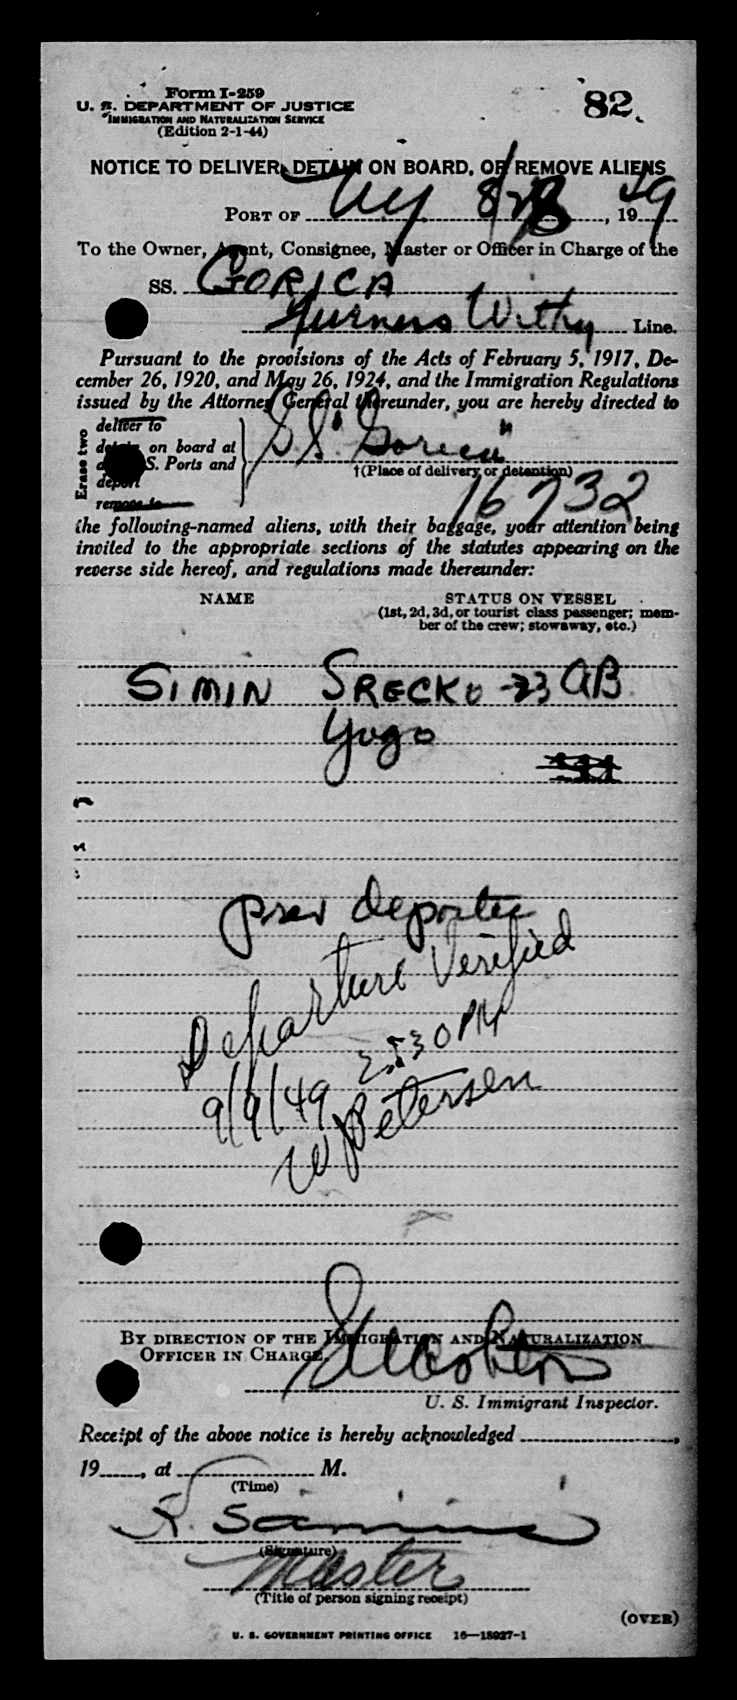 Form I-259
82
U. S. DEPARTMENT OF JUSTICE
IMMIGRATION AND NATURALIZATION SERVICE
(Edition 2-1-44)
NOTICE TO DELIVER, DETAIN ON BOARD, OR REMOVE ALIENS
PORT OF NY 8/28, 1949
To the Owner, Agent, Consignee, Master or Officer in Charge of the
SS. GORICA
Furness Withy Line.
Pursuant to the provisions of the Acts of February 5, 1917, De-
cember 26, 1920, and May 26, 1924, and the Immigration Regulations
issued by the Attorney General thereunder, you are hereby directed to
Erase two
deliver to
detain on board at S.S. "Gorica"
S. Ports and
†(Place of delivery or detention)
deport
remove to
16732
the following-named aliens, with their baggage, your attention being
invited to the appropriate sections of the statutes appearing on the
reverse side hereof, and regulations made thereunder:
NAME STATUS ON VESSEL
(1st, 2d, 3d, or tourist class passenger; mem-
ber of the crew; stowaway, etc.)
SIMIN SRECKO -23 AB
Yugo
prev deportee
Departure Verified
9/9/49 2:530 PM
W Petersen
BY DIRECTION OF THE IMMIGRATION AND NATURALIZATION
OFFICER IN CHARGE
U. S. Immigrant Inspector.
Receipt of the above notice is hereby acknowledged
19, at M.
(Time)
(Signature)
Master
(Title of person signing receipt)
(OVER)
U. S. GOVERNMENT PRINTING OFFICE 16—18927-1